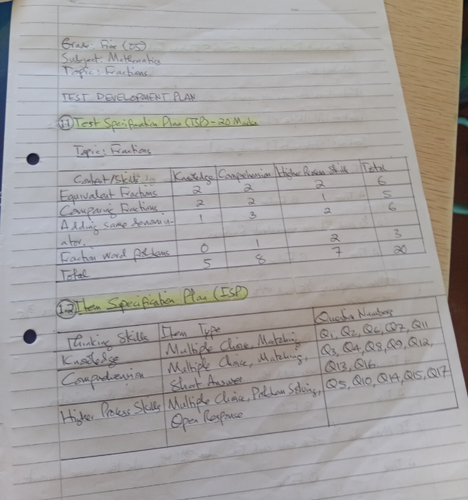 Grade: Five (05)
Subject: Mathematics
Topic: Fractions
TEST DEVELOPMENT PLAN
1.1 Test Specification Plan (TSP) - 20 Marks
Topic: Fractions
Content/Skills Knowledge Comprehension Higher Process Skills Total
Equivalent Fractions 2 2 2 6
Comparing Fractions 2 2 1 5
Adding same denomin- 1 3 2 6
ator
Fraction word problems 0 1 2 3
Total 5 8 7 20
1.2 Item Specification Plan (ISP)
Thinking Skills Item Type Question Numbers
Knowledge Multiple Choice, Matching Q1, Q2, Q6, Q7, Q11
Comprehension Multiple Choice, Matching, Q3, Q4, Q8, Q9, Q12,
Short Answer Q13, Q16
Higher Process Skills Multiple Choice, Problem Solving, Q5, Q10, Q14, Q15, Q17
Open Response